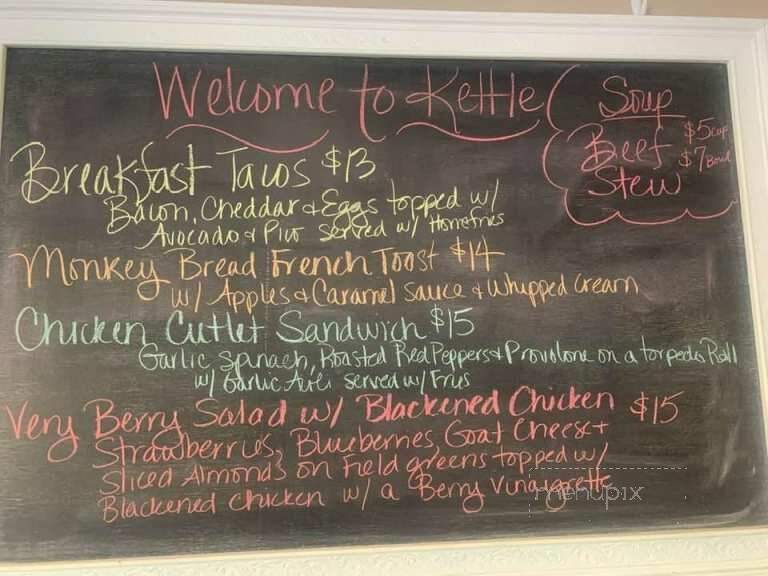 Welcome to Kettle
Soup
Beef $5 cup
Stew $7 Bowl
Breakfast Tacos $13
Bacon, Cheddar & Eggs topped w/
Avocado & Pico served w/ Homefries
Monkey Bread French Toast $14
w/ Apples & Caramel Sauce & Whipped Cream
Chicken Cutlet Sandwich $15
Garlic Spinach, Roasted Red Peppers & Provolone on a torpedo Roll
w/ Garlic Aioli served w/ Fries
Very Berry Salad w/ Blackened Chicken $15
Strawberries, Blueberries, Goat Cheese &
Sliced Almonds on Field greens topped w/
Blackened Chicken w/ a Berry Vinaigrette
menupix